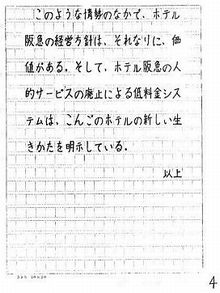 このような情勢のなかで、ホテル
阪急の経営方針は、それなりに、価
値がある。そして、ホテル阪急の人
的サービスの廃止による低料金シス
テムは、こんごのホテルの新しい生
きかたを明示している。
以上
4